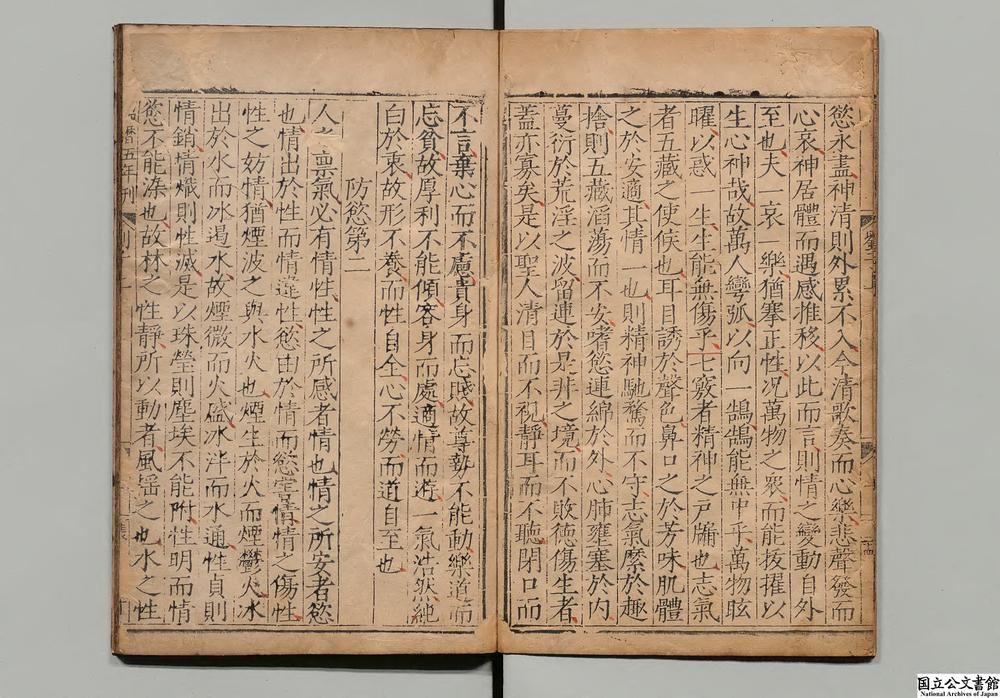 慾永盡神清則外累不入今清歌奏而心樂悲聲發而
心哀神居體而遇感推移以此而言則情之變動自外
至也夫一哀一樂猶搴正性况萬物之衆而能拔擢以
生心神哉故萬人彎弧以向一鵠鵠能無中乎萬物眩
曜以惑一生生能無傷乎七竅者精神之户牖也志氣
者五藏之使候也耳目誘於聲色鼻口之於芳味肌體
之於安適其情一也則精神馳騖而不守志氣縻於趣
捨則五藏滔蕩而不安嗜慾連綿於外心腑壅塞於内
蔓衍於荒淫之波留連於是非之境而不敗德傷生者
蓋亦寡矣是以聖人清目而不視靜耳而不聽閉口而
不言棄心而不慮貴身而忘賤故尊勢不能動樂道而
忘貧故厚利不能傾容身而處適情而遊一氣浩然純
白於衷故形不養而性自全心不勞而道自至也
防慾第二
人之禀氣必有情性性之所感者情也情之所安者慾
也情出於性而情違性慾由於情而慾害情情之傷性
性之妨情猶煙波之與水火也煙生於火而煙鬱火冰
出於水而冰遏水故煙微而火盛冰泮而水通性貞則
情銷情熾則性滅是以珠瑩則塵埃不能附性明而情
慾不能染也故林之性靜所以動者風摇之也水之性
五年刊
國立公文書館
National Archives of Japan